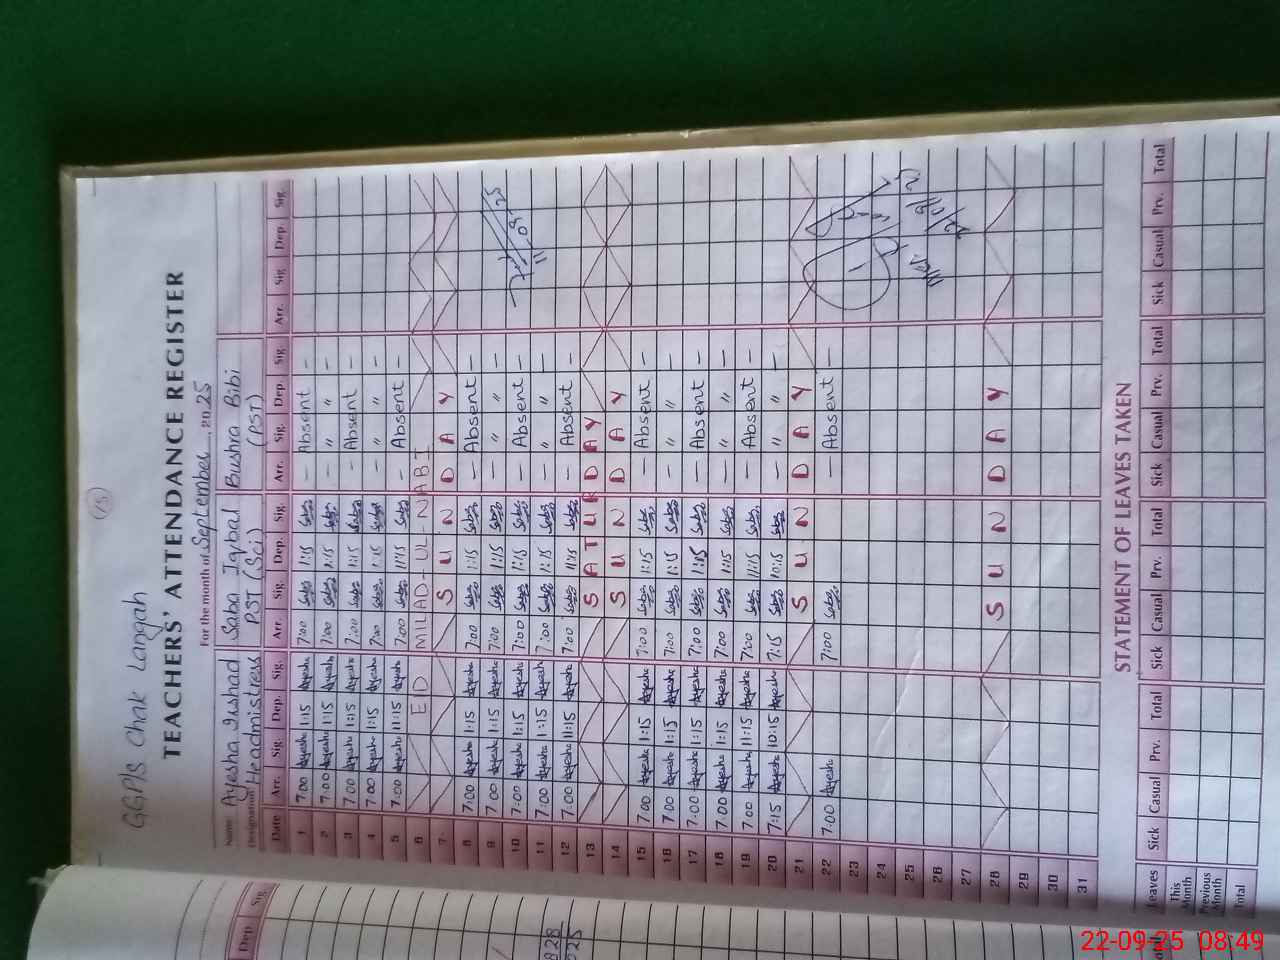 15
GGP/S Chak Langah
TEACHERS' ATTENDANCE REGISTER
For the month of September, 2025
Name: Ayesha Irshad Saba Iqbal Bushra Bibi
Designation Headmistress PST (Sci) (PST)
Date Arr. Sig. Dep. Sig. Arr. Sig. Dep. Sig. Arr. Sig. Dep. Sig. Arr. Sig. Dep. Sig.
1 7:00 Ayesha 1:15 Ayesha 7:00 Saba 1:15 Saba — Absent —
2 7:00 Ayesha 1:15 Ayesha 7:00 Saba 1:15 Saba — " " —
3 7:00 Ayesha 1:15 Ayesha 7:00 Saba 1:15 Saba — Absent —
4 7:00 Ayesha 1:15 Ayesha 7:00 Saba 1:15 Saba — " " —
5 7:00 Ayesha 11:15 Ayesha 7:00 Saba 11:15 Saba — Absent —
6 EID MILAD-UL-NABI
7 SUNDAY
8 7:00 Ayesha 1:15 Ayesha 7:00 Saba 1:15 Saba — Absent —
9 7:00 Ayesha 1:15 Ayesha 7:00 Saba 1:15 Saba — " " —
10 7:00 Ayesha 1:15 Ayesha 7:00 Saba 1:15 Saba — Absent —
11 7:00 Ayesha 1:15 Ayesha 7:00 Saba 1:15 Saba — " " —
12 7:00 Ayesha 11:15 Ayesha 7:00 Saba 11:15 Saba — Absent —
13 SATURDAY
14 SUNDAY
15 7:00 Ayesha 1:15 Ayesha 7:00 Saba 1:15 Saba — Absent —
16 7:00 Ayesha 1:15 Ayesha 7:00 Saba 1:15 Saba — " " —
17 7:00 Ayesha 1:15 Ayesha 7:00 Saba 1:15 Saba — Absent —
18 7:00 Ayesha 1:15 Ayesha 7:00 Saba 1:15 Saba — " " —
19 7:00 Ayesha 11:15 Ayesha 7:00 Saba 11:15 Saba — Absent —
20 7:15 Ayesha 10:15 Ayesha 7:15 Saba 10:15 Saba — " " —
21 SUNDAY
22 7:00 Ayesha 7:00 Saba — Absent —
23
24
25
26
27
28 SUNDAY
29
30
31
11.09.25
STATEMENT OF LEAVES TAKEN
Leaves Sick Casual Prv. Total Sick Casual Prv. Total Sick Casual Prv. Total Sick Casual Prv. Total
This Month
Previous Month
Total
Dep. Sig.
828
025
Total
22-09-25 08:49